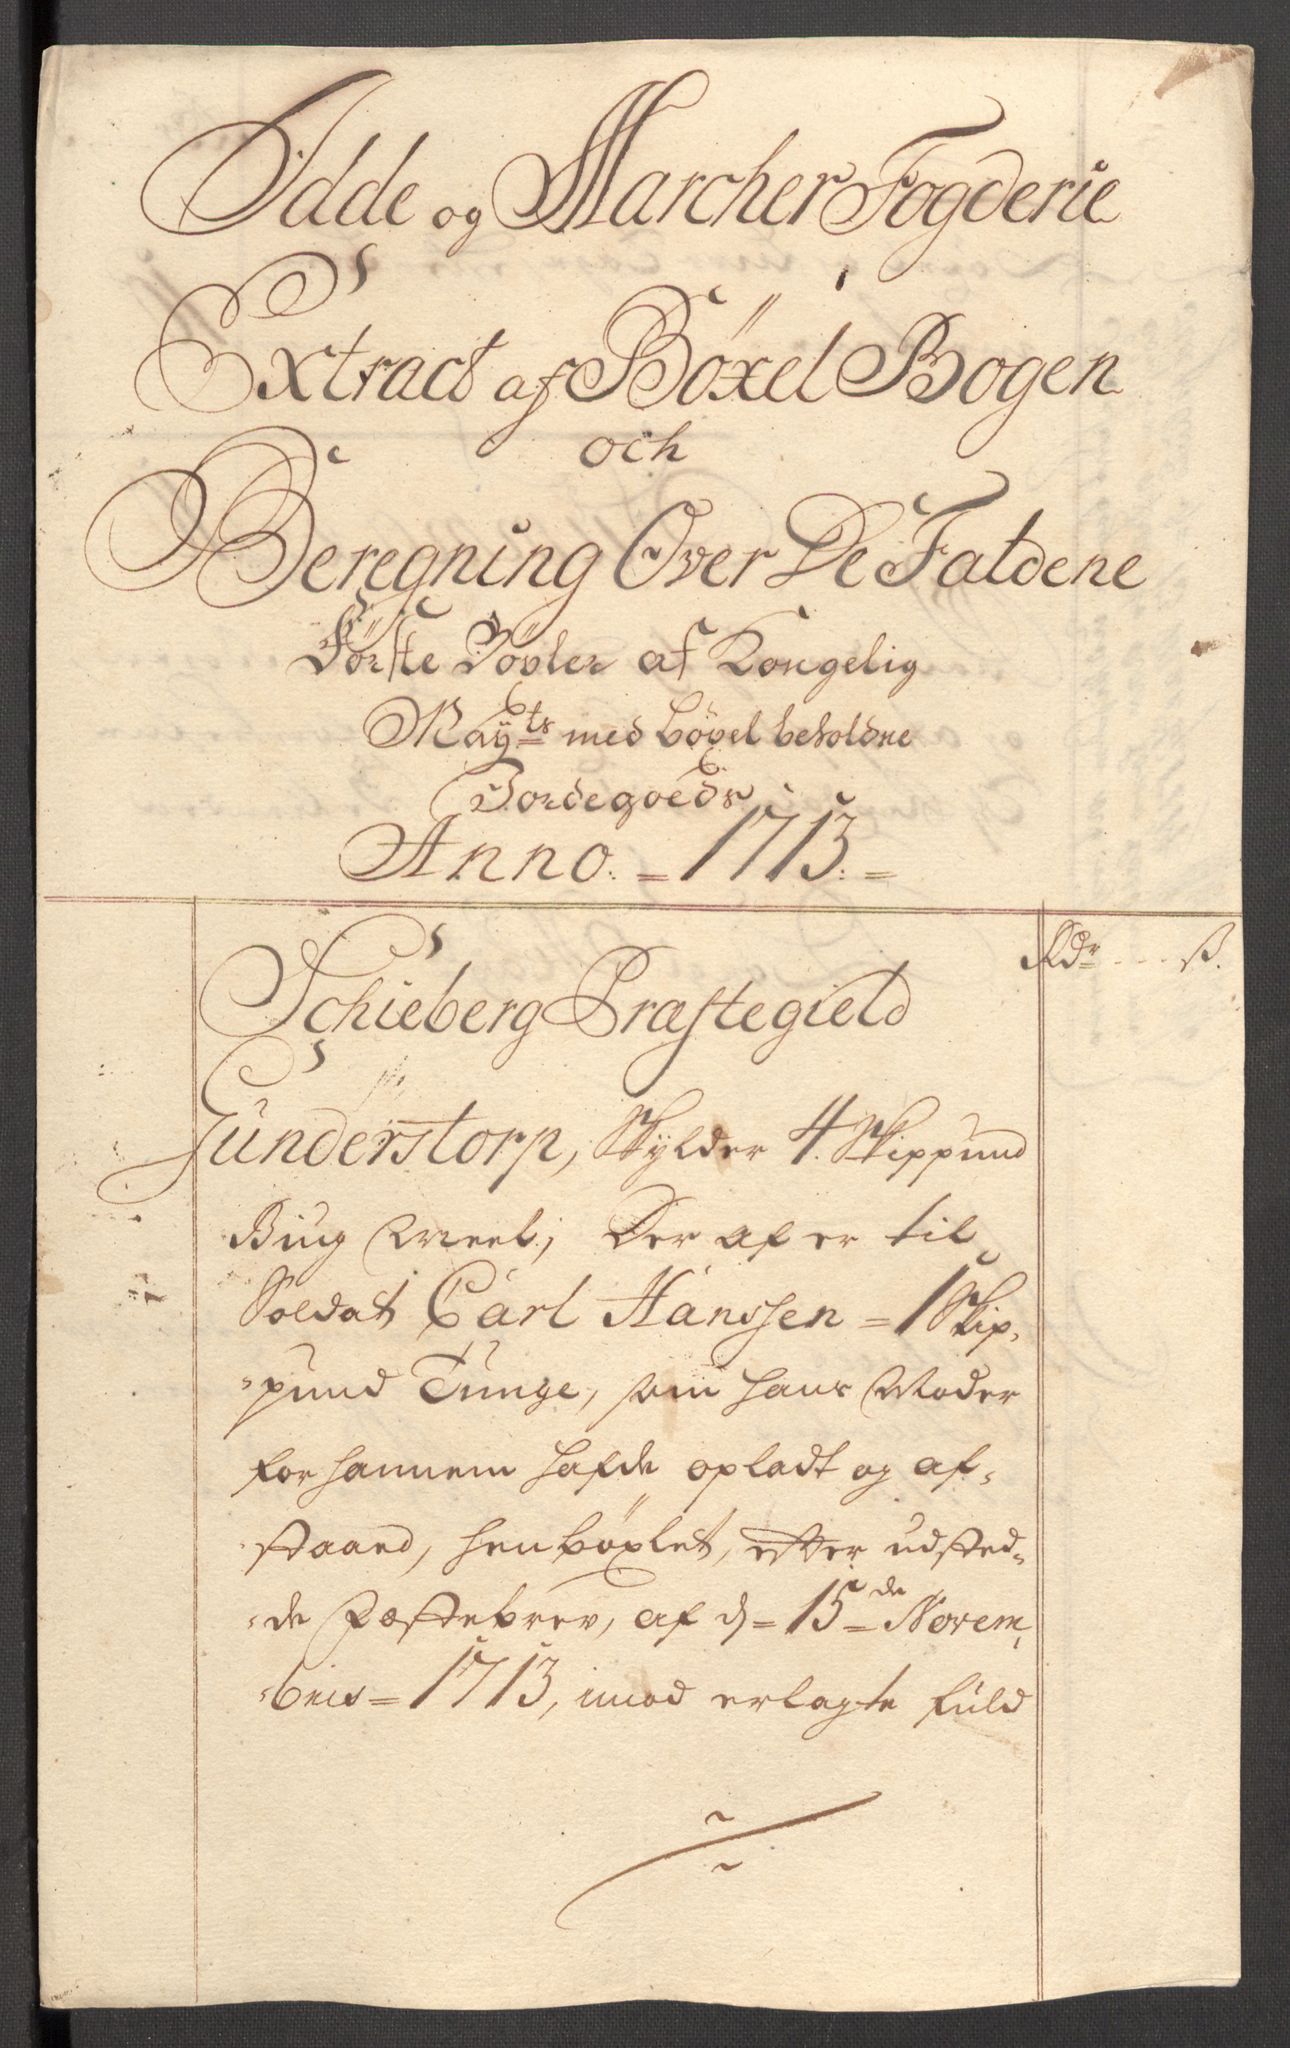 Idde og Marcher Fogderie
Extract af Böxel Bogen
och
Beregning Over De Faldene
Förste Böxler af Kongelig
Mayts med böxel beholdne
Jordegoeds
Anno. = 1713. =
Rdr ... ß.
Schieberg Præstegield
Gunderstorp, Skylder 4. Skippund
Biug Meel; Der af er til
Soldat Carl Hanssen = 1 Skip,
pund Tunge, som hans Moder
for hannem hafde opladt og af,
staaed, henböxlet, efter udsted,
de Fæstebrev, af d = 15de Novem,
bris = 1713, imod erlagte fuld